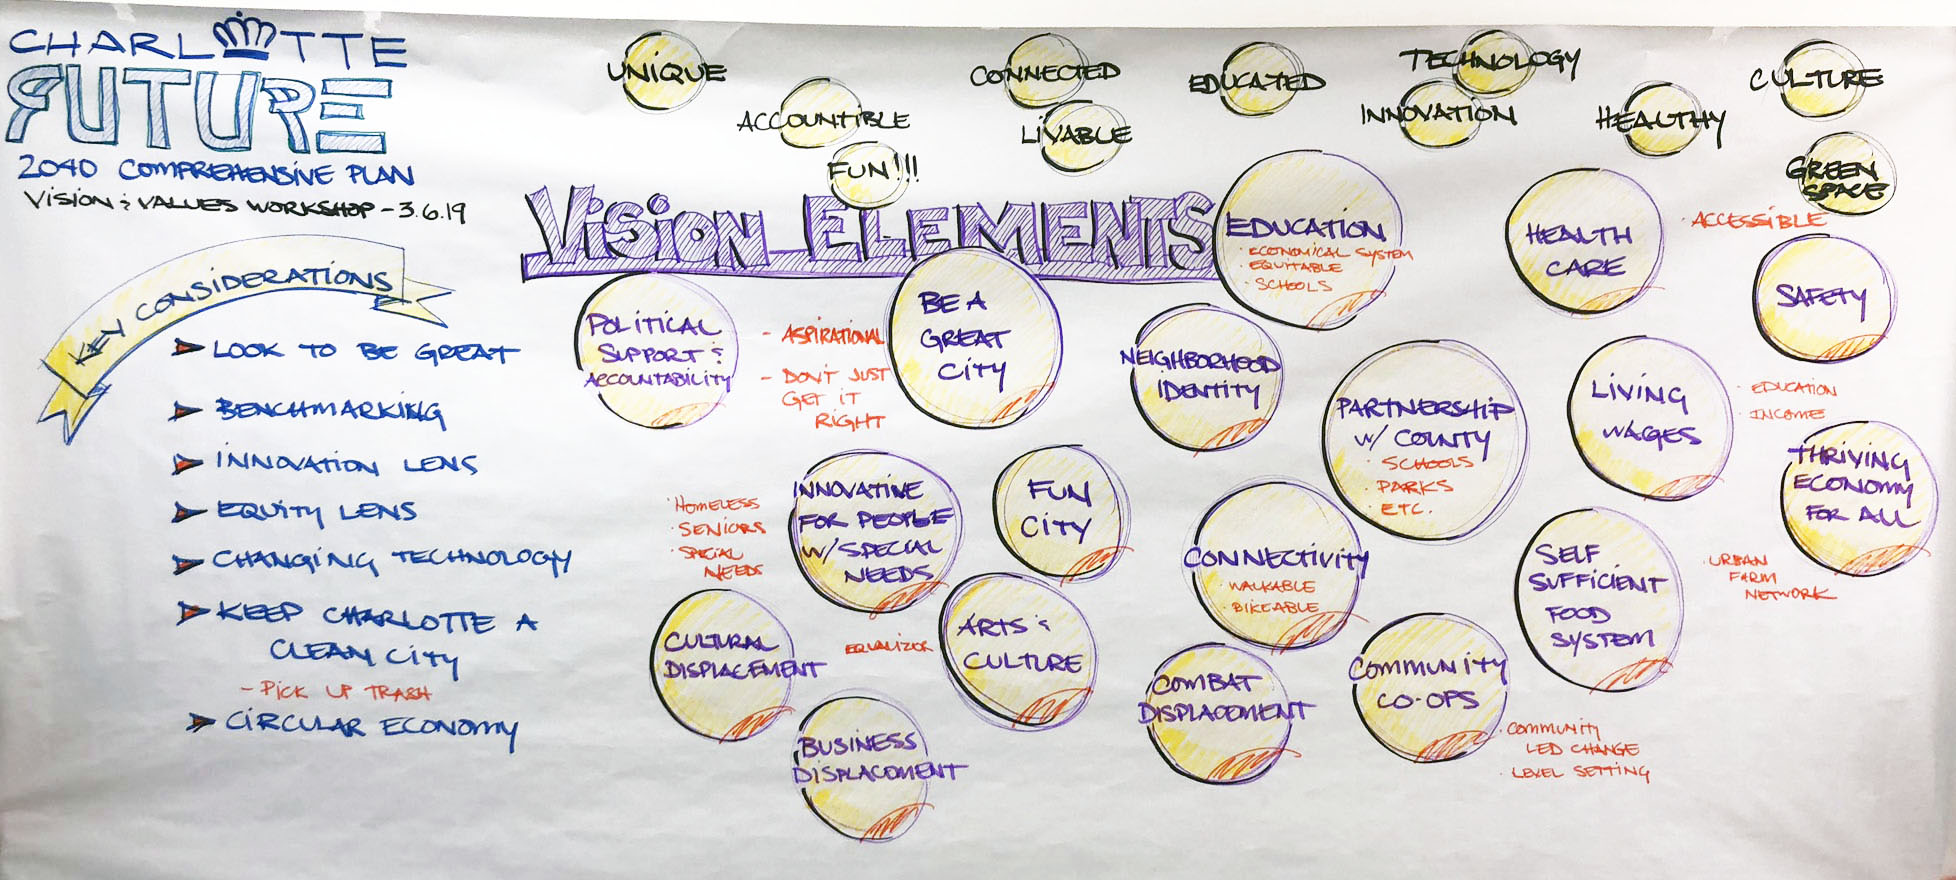 CHARLOTTE
FUTURE
2040 COMPREHENSIVE PLAN
VISION & VALUES WORKSHOP - 3.6.19
KEY CONSIDERATIONS
LOOK TO BE GREAT
BENCHMARKING
INNOVATION LENS
EQUITY LENS
CHANGING TECHNOLOGY
KEEP CHARLOTTE A
CLEAN CITY
- PICK UP TRASH
CIRCULAR ECONOMY
UNIQUE
ACCOUNTIBLE
FUN!!!
CONNECTED
LIVABLE
EDUCATED
TECHNOLOGY
INNOVATION
HEALTHY
CULTURE
GREEN
SPACE
VISION ELEMENTS
POLITICAL
SUPPORT &
ACCOUNTABILITY
- ASPIRATIONAL
- DON'T JUST
GET IT
RIGHT
BE A
GREAT
CITY
NEIGHBORHOOD
IDENTITY
EDUCATION
· ECONOMICAL SYSTEM
· EQUITABLE
· SCHOOLS
HEALTH
CARE
· ACCESSIBLE
SAFETY
PARTNERSHIP
W/ COUNTY
· SCHOOLS
· PARKS
· ETC.
LIVING
WAGES
· EDUCATION
· INCOME
THRIVING
ECONOMY
FOR ALL
· HOMELESS
· SENIORS
· SPECIAL
NEEDS
INNOVATIVE
FOR PEOPLE
W/ SPECIAL
NEEDS
FUN
CITY
CONNECTIVITY
· WALKABLE
· BIKEABLE
SELF
SUFFICIENT
FOOD
SYSTEM
· URBAN
FARM
NETWORK
CULTURAL
DISPLACEMENT
EQUALIZER
ARTS &
CULTURE
COMBAT
DISPLACEMENT
COMMUNITY
CO-OPS
· COMMUNITY
LED CHANGE
· LEVEL SETTING
BUSINESS
DISPLACMENT